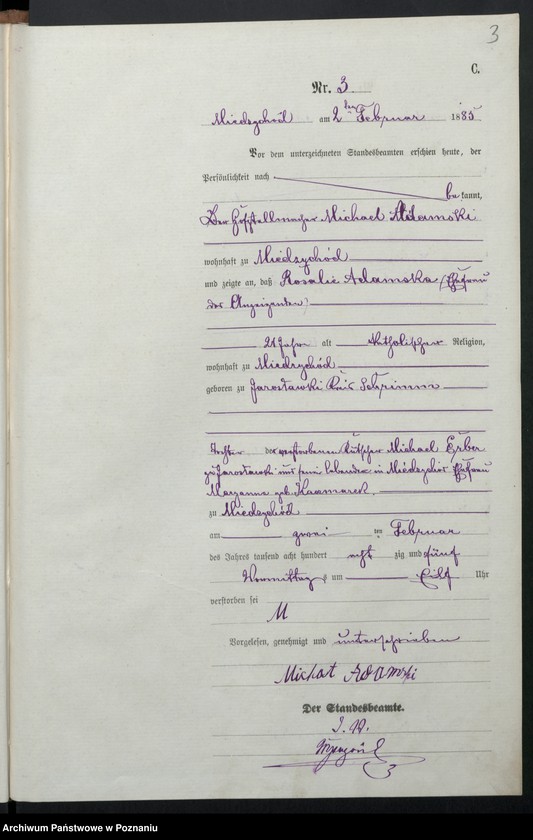 3
C.
Nr. 3
Miedzychód am 2ten Februar 1885
Vor dem unterzeichneten Standesbeamten erschien heute, der
Persönlichkeit nach
be kannt,
Der Michael Adamski
wohnhaft zu Miedzychód
und zeigte an, daß Rosalie Adamska, Ehefrau
des Anzeigenden
21 Jahre alt katholischer Religion,
wohnhaft zu Miedzychód
geboren zu Jaroslawki Kreis Schrimm
Tochter des verstorbenen Kutscher Michael
zu Jaroslawki und seine lebende in Ehefrau
Maryanna geb. Kaczmarek
zu Miedzychód
am zwei ten Februar
des Jahres tausend acht hundert acht zig und fünf
Vormittags um Eilf Uhr
verstorben sei
Vorgelesen, genehmigt und unterschrieben
Michał Adamski
Der Standesbeamte.
J. V.
Archiwum Państwowe w Poznaniu